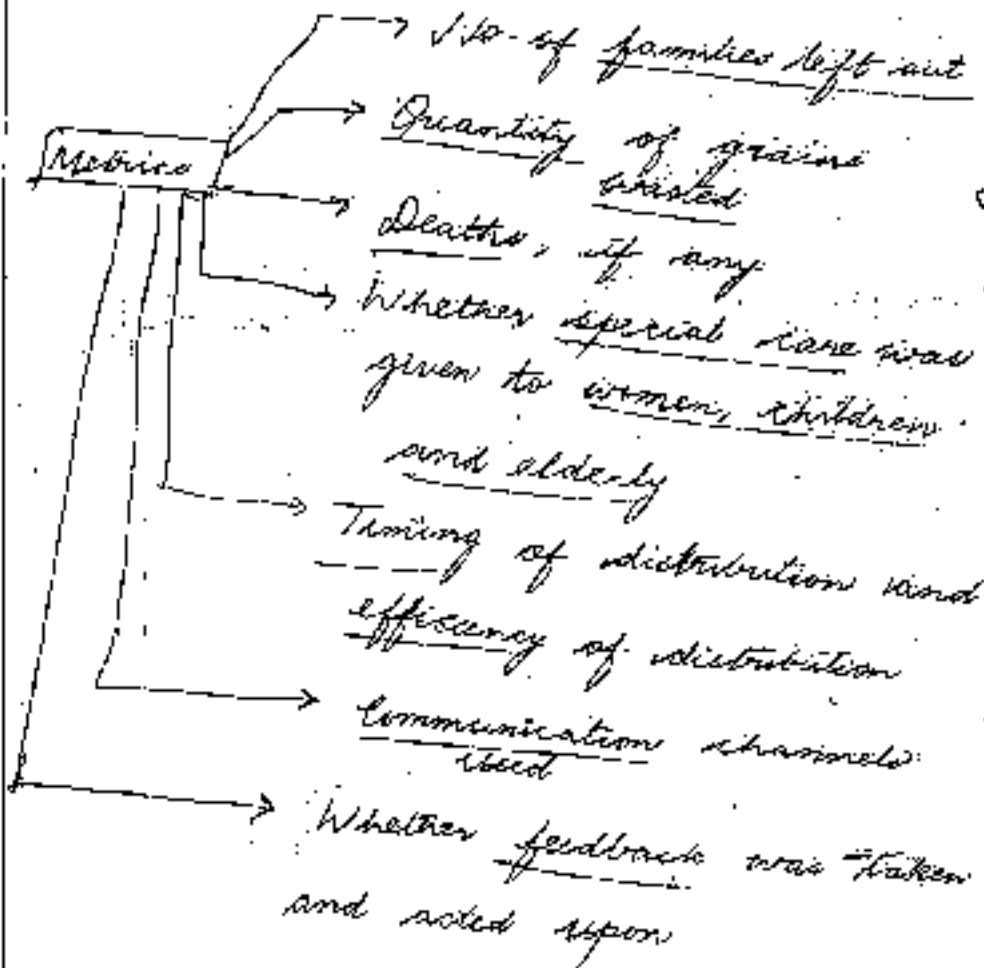 No. of families left out
Quantity of grains
wasted
Metrics
Deaths, if any
Whether special care was
given to women, children
and elderly
Timing of distribution and
efficiency of distribution
Communication channels
used
Whether feedback was taken
and acted upon